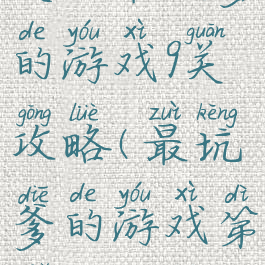 de yóu xì guān
的游戏9关
gōng lüè zuì kēng
攻略(最坑
diē de yóu xì dì
爹的游戏第